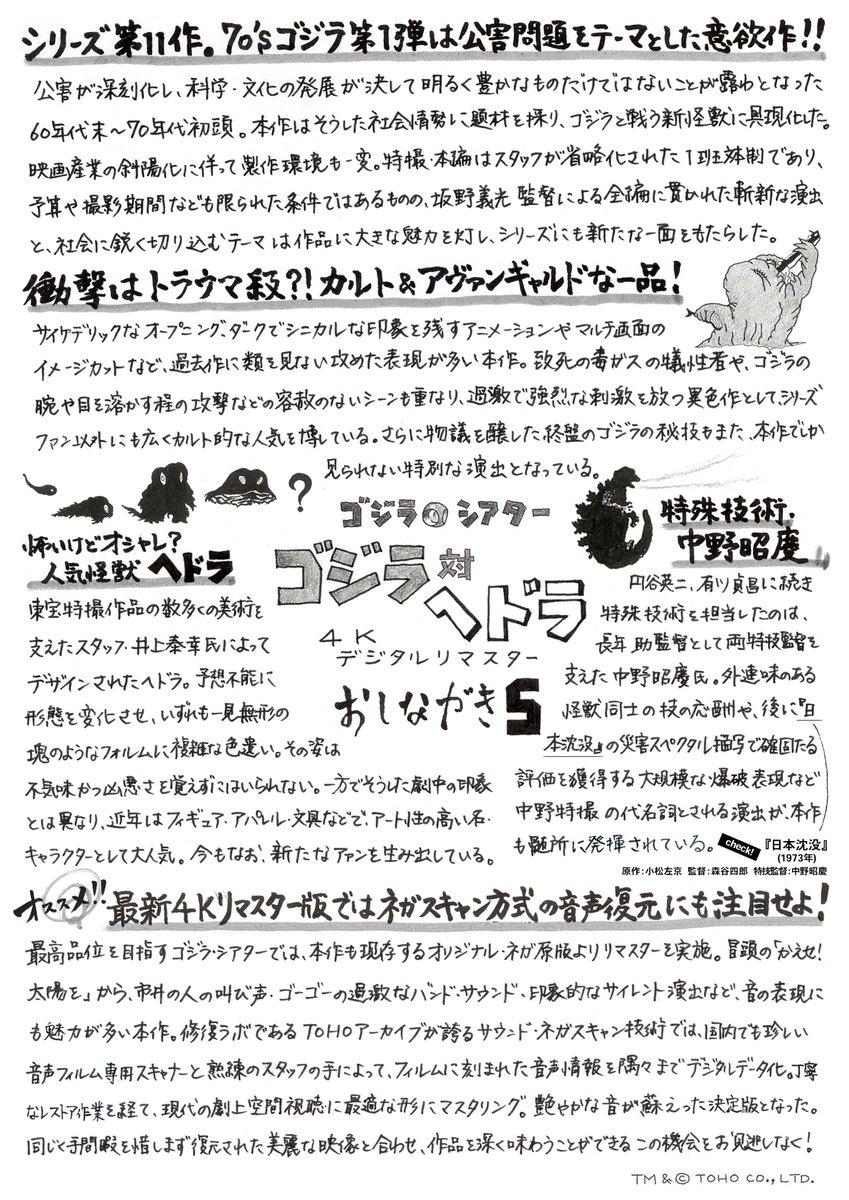 シリーズ第11作。70'sゴジラ第1弾は公害問題をテーマとした意欲作!!
公害が深刻化し、科学・文化の発展が決して明るく豊かなものだけではないことが露わとなった
60年代末〜70年代初頭。本作はそうした社会情勢に題材を採り、ゴジラと戦う新怪獣に具現化した。
映画産業の斜陽化に伴って製作環境も一変。特撮・本編はスタッフが省略化された1班体制であり、
予算や撮影期間なども限られた条件ではあるものの、坂野義光監督による全編に貫かれた斬新な演出
と、社会に鋭く切り込むテーマは作品に大きな魅力を灯し、シリーズにも新たな一面をもたらした。
衝撃はトラウマ級?!カルト&アヴァンギャルドな一品!
サイケデリックなオープニング、ダークでシニカルな印象を残すアニメーションやマルチ画面の
イメージカットなど、過去作に類を見ない攻めた表現が多い本作。致死の毒ガスの犠性者や、ゴジラの
腕や目を溶かす程の攻撃などの容赦のないシーンも重なり、過激で強烈な刺激を放つ異色作として、シリーズ
ファン以外にも広くカルト的な人気を博している。さらに物議を醸した終盤のゴジラの秘技もまた、本作でしか
見られない特別な演出となっている。
?
ゴジラ・シアター
ゴジラ対ヘドラ
4K
デジタルリマスター
おしながき5
怖いけどオシャレ?
人気怪獣ヘドラ
東宝特撮作品の数多くの美術を
支えたスタッフ・井上泰幸氏によって
デザインされたヘドラ。予想不能に
形態を変化させ、いずれも一見無形の
塊のようなフォルムに複雑な色遣い。その姿は
不気味かつ凶悪さを覚えずにはいられない。一方でそうした劇中の印象
とは異なり、近年はフィギュア・アパレル・文具などで、アート性の高い名・
キャラクターとして大人気。今もなお、新たなファンを生み出している。
特殊技術・
中野昭慶
円谷英二、有川貞昌に続き
特殊技術を担当したのは、
長年助監督として両特技監督を
支えた中野昭慶氏。外連味のある
怪獣同士の技の応酬や、後に『日
本沈没』の災害スペクタル描写で確固たる
評価を獲得する大規模な爆破表現など
中野特撮の代名詞とされる演出が、本作
も随所に発揮されている。
check!
『日本沈没』
(1973年)
原作:小松左京 監督:森谷四郎 特技監督:中野昭慶
オススメ!! 最新4Kリマスター版ではネガスキャン方式の音声復元にも注目せよ!
最高品位を目指すゴジラ・シアターでは、本作も現存するオリジナル・ネガ原版よりリマスターを実施。冒頭の「かえせ!
太陽を」から、市井の人の叫び声・ゴーゴーの過激なバンド・サウンド、印象的なサイレント演出など、音の表現に
も魅力が多い本作。修復ラボであるTOHOアーカイブが誇るサウンド・ネガスキャン技術では、国内でも珍しい
音声フィルム専用スキャナーと熟練のスタッフの手によって、フィルムに刻まれた音声情報を隅々までデジタルデータ化。丁寧
なレストア作業を経て、現代の劇上空間視聴に最適な形にマスタリング。艶やかな音が蘇えった決定版となった。
同じく手間暇を惜しまず復元された美麗な映像と合わせ、作品を深く味わうことができるこの機会をお見逃しなく!
TM&© TOHO CO., LTD.